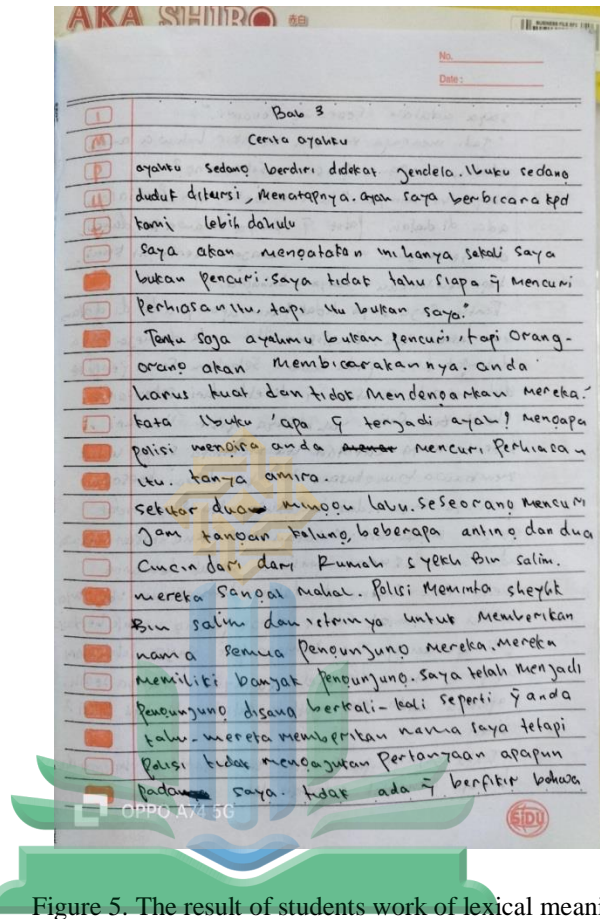 AKA SHIRO
No.
Date :
Bab 3
Cerita ayahku
ayahku sedang berdiri didekat jendela. Ibuku sedang
duduk dikursi, menatapnya. ayah saya berbicara kpd
kami lebih dahulu
saya akan mengatakan ini hanya sekali saya
bukan pencuri. saya tidak tahu siapa yg mencuri
perhiasan itu, tapi itu bukan saya."
Tentu saja ayahmu bukan pencuri, tapi orang-
orang akan membicarakannya. anda
harus kuat dan tidak mendengarkan mereka."
kata Ibuku 'apa yg terjadi ayah? mengapa
polisi mengira anda mencuri perhiasan
itu. tanya amira.
sekitar dua minggu lalu. seseorang mencuri
jam tangan kalung, beberapa anting dan dua
Cincin dari dari Rumah syekh Bin salim.
mereka sangat mahal. Polisi meminta sheykh
Bin salim dan istrinya untuk memberikan
nama semua pengunjung mereka. mereka
memiliki banyak pengunjung. saya telah menjadi
pengunjung disana berkali-kali seperti yg anda
tahu-mereka memberikan nama saya tetapi
polisi tidak mengajukan pertanyaan apapun
pada saya. tidak ada yg berfikir bahwa
SIDU
OPPO A74 5G
Figure 5. The result of students work of lexical meani